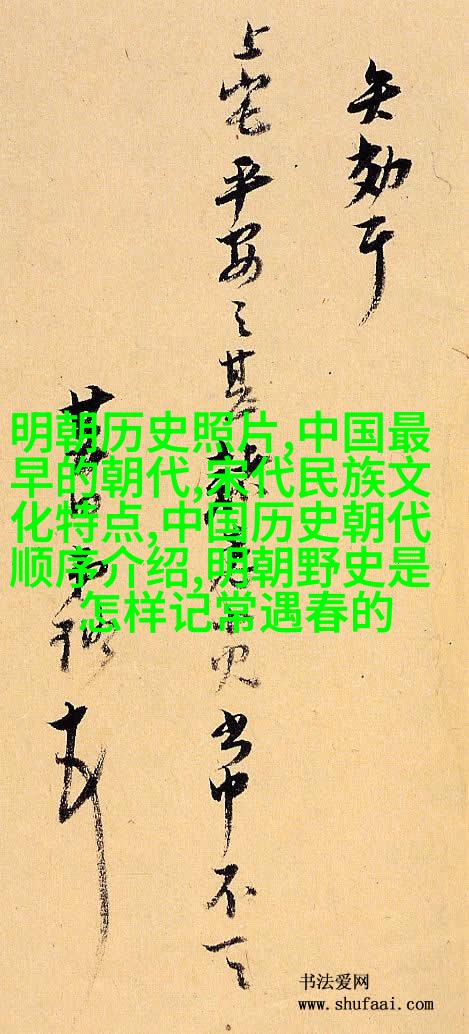 上宅平安之甚
書中不一
明朝历史照片,中国最
早的朝代,宋代民族文
化特点,中国历史朝代
顺序介绍,明朝野史是
怎样记常遇春的
书法爱网
www.shufaai.com